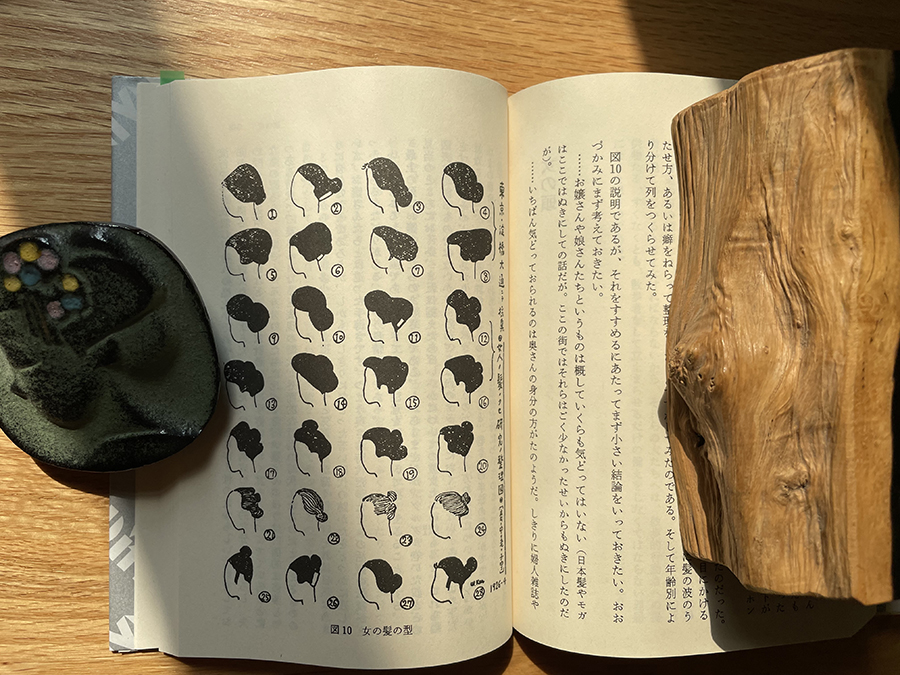 たせ方、あるいは癖をねらって整理を
り分けて列をつくらせてみた。
図10の説明であるが、それをすすめるにあたってまず小さい結論をいっておきたい。おお
づかみにまず考えておきたい。
……お嬢さんや娘さんたちというものは概していくらも気どってはいない（日本髪やモガ
はここではぬきにしての話だが。ここの街ではそれらはごく少なかったせいからもぬきにしたのだ
が）。
……いちばん気どっておられるのは奥さんの身分の方がたのようだ。しきりに婦人雑誌や
みたのである。そして年齢別によ
髪の波のう
にかける
のだった。
①
②
③
④
⑤
⑥
⑦
⑧
⑨
⑩
⑪
⑫
⑬
⑭
⑮
⑯
⑰
⑱
⑲
⑳
㉑
㉒
㉓
㉔
㉕
㉖
㉗
㉘
図10 女の髪の型